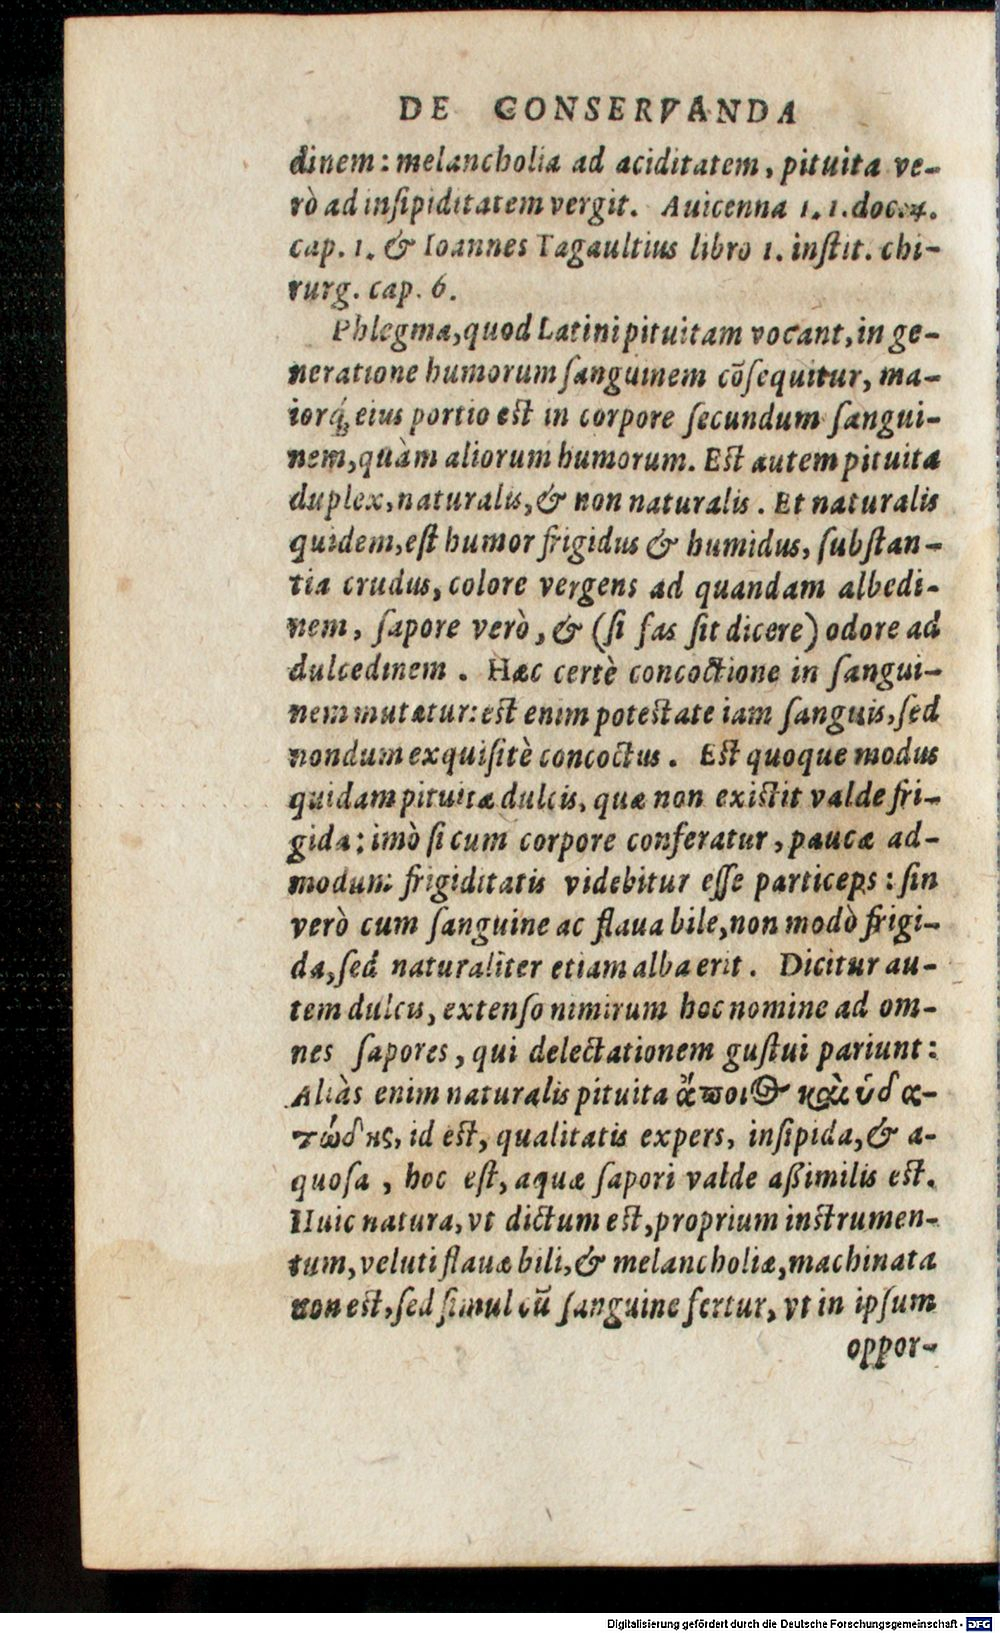 DE CONSERVANDA
dinem: melancholia ad aciditatem, pituita ve-
rò ad insipiditatem vergit. Auicenna 1. 1. doc. 4.
cap. 1. & Ioannes Tagaultius libro 1. instit. chi-
rurg. cap. 6.
Phlegma, quod Latini pituitam vocant, in ge-
neratione humorum sanguinem cōsequitur, ma-
iorq́; eius portio est in corpore secundum sangui-
nem, quàm aliorum humorum. Est autem pituita
duplex, naturalis, & non naturalis. Et naturalis
quidem, est humor frigidus & humidus, substan-
tia crudus, colore vergens ad quandam albedi-
nem, sapore verò, & (si fas sit dicere) odore ad
dulcedinem. Hæc certè concoctione in sangui-
nem mutatur: est enim potestate iam sanguis, sed
nondum exquisitè concoctus. Est quoque modus
quidam pituitæ dulcis, quæ non existit valde fri-
gida: imò si cum corpore conferatur, paucæ ad-
modum frigiditatis videbitur esse particeps: sin
verò cum sanguine ac flaua bile, non modò frigi-
da, sed naturaliter etiam alba erit. Dicitur au-
tem dulcis, extenso nimirum hoc nomine ad om-
nes sapores, qui delectationem gustui pariunt:
Aliàs enim naturalis pituita ἄποιος καὶ ὑδα-
τώδης, id est, qualitatis expers, insipida, & a-
quosa, hoc est, aquæ sapori valde aßimilis est.
Huic natura, vt dictum est, proprium instrumen-
tum, veluti flauæ bili, & melancholiæ, machinata
non est, sed simul cū sanguine fertur, vt in ipsum
oppor-
Digitalisierung gefördert durch die Deutsche Forschungsgemeinschaft - DFG